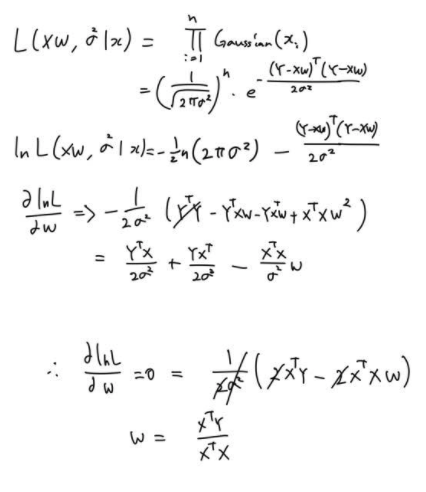 L(xw, σ²|x) = ∏ᵢ₌₁ⁿ Gaussian(xᵢ)
= (1/√(2πσ²))ⁿ · e^(-(Y-xw)ᵀ(Y-xw)/2σ²)
ln L(xw, σ²|x) = -½n(2πσ²) - (Y-xw)ᵀ(Y-xw)/2σ²
∂lnL/∂w => -1/2σ² (YᵀY - Yᵀxw - Yxᵀw + xᵀxw²)
= Yᵀx/2σ² + Yxᵀ/2σ² - xᵀx/σ² w
∴ ∂lnL/∂w = 0 = 1/2σ² (2xᵀY - 2xᵀxw)
w = xᵀY/xᵀx